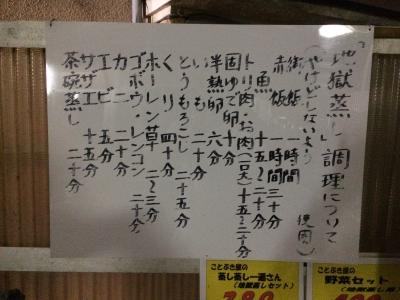 地獄蒸し調理について
(やけどしないよう使用)
街飯 一時間
赤飯 一時間三十分
魚 十五〜二十分
トリ肉・お肉(冶大)十五〜二十分
固ゆで卵 十分
半熟卵 六分
いも 二十分
とうもろこし 二十五分
くり 四十分
ホーレン草 二〜三分
ゴボウ・レンコン 二十分
カニ 二十分
エビ 十五分
サザエ 十五分
茶碗蒸し 二十分
ことぶき屋の
蒸し蒸し一通さん
(地獄蒸しセット)
ことぶき屋の
野菜セット
(地獄蒸し用)